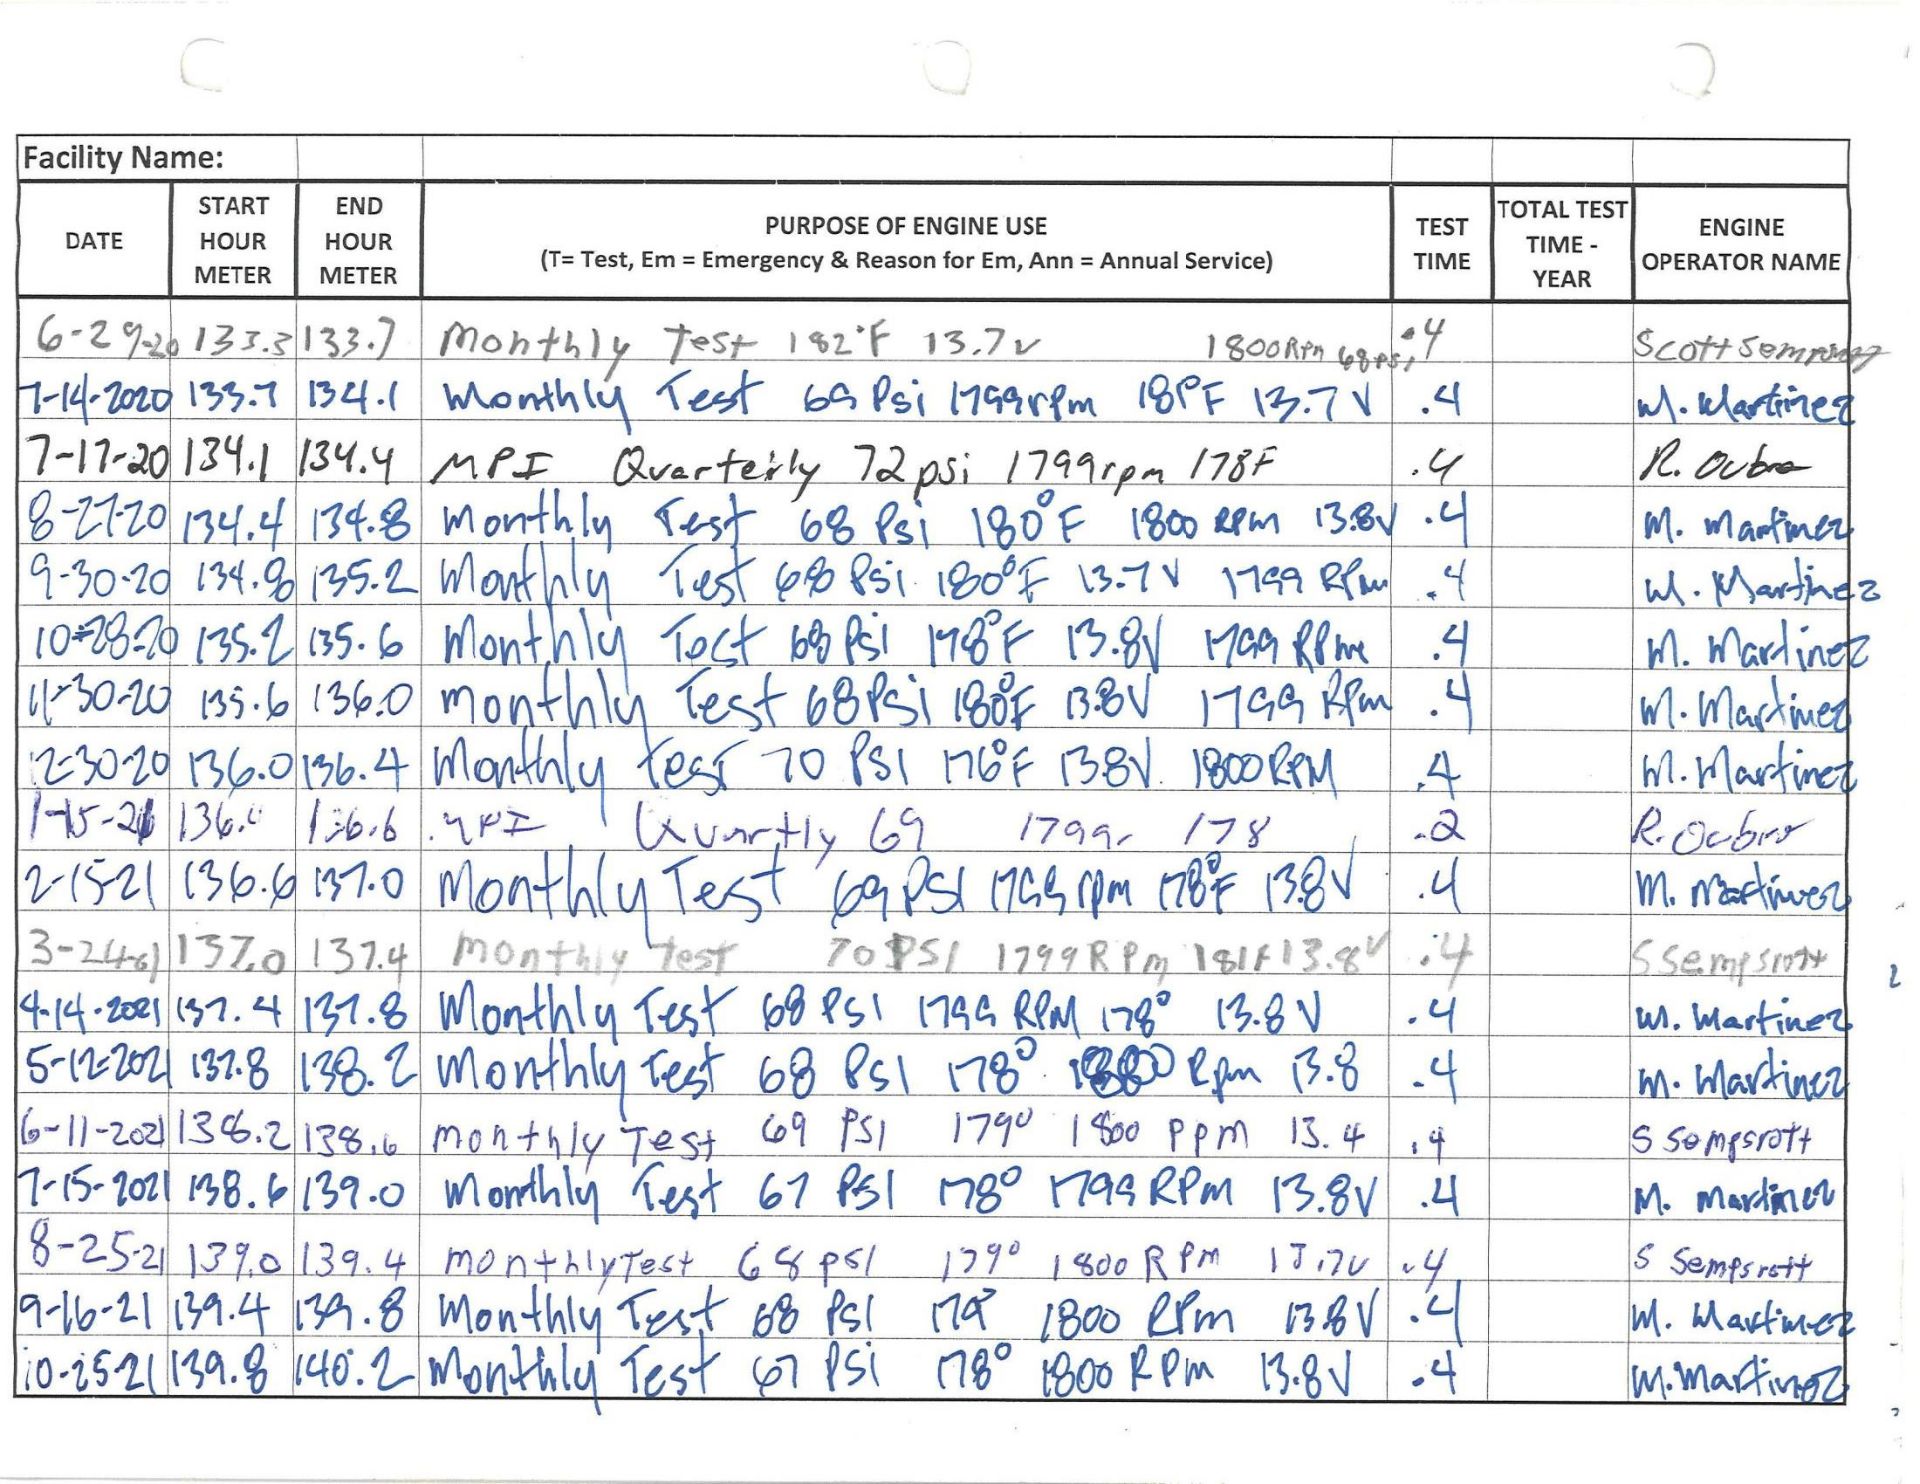 Facility Name:
DATE START HOUR METER END HOUR METER PURPOSE OF ENGINE USE (T= Test, Em = Emergency & Reason for Em, Ann = Annual Service) TEST TIME TOTAL TEST TIME - YEAR ENGINE OPERATOR NAME
6-29-20 133.3 133.7 Monthly Test 182°F 13.7v 1800RPM 68psi .4 Scott Sempsrott
7-14-2020 133.7 134.1 Monthly Test 69 Psi 1799rpm 13.7 V .4 M. Martinez
7-17-20 134.1 134.4 MPI Quarterly 72psi 1799rpm 178F .4 R.
8-27-20 134.4 134.8 Monthly Test 68 Psi 180°F 1800 RPM 13.8V .4 M. Martinez
9-30-20 134.8 135.2 Monthly Test 68 Psi 180°F 13.7 V 1799 RPm .4 M. Martinez
10-28-20 135.2 135.6 Monthly Test 68 Psi 178°F 13.8V 1799 RPm .4 M. Martinez
11-30-20 135.6 136.0 Monthly Test 68 Psi 180°F 13.8V 1799 RPm .4 M. Martinez
12-30-20 136.0 136.4 Monthly Test 70 PSI 176°F 13.8V 1800 RPM .4 M. Martinez
1-15-21 136.6 Quartly 69 1799 178 .2 R.
2-15-21 136.6 137.0 Monthly Test 69 PSI 1799 rpm 178°F 13.8V .4 M. Martinez
3-24-21 137.0 137.4 Monthly Test 70 PSI 1799 RPm 181F 13.8V .4 S Sempsrott
4-14-2021 137.4 137.8 Monthly Test 68 PSI 1799 RPM 178° 13.8 V .4 M. Martinez
5-12-2021 137.8 138.2 Monthly Test 68 PSI 178° Rpm 13.8 .4 M. Martinez
6-11-2021 138.2 138.6 monthly Test 69 PSI 179° 1800 ppm 13.4 .4 S Sempsrott
7-15-2021 138.6 139.0 Monthly Test 67 PSI 178° 1799 RPM 13.8V .4 M. Martinez
8-25-21 139.0 139.4 monthly Test 68 psi 179° 1800 RPM 13.7V .4 S Sempsrott
9-16-21 139.4 139.8 Monthly Test 68 PSI 179° 1800 RPm 13.8V .4 M. Martinez
10-25-21 139.8 140.2 Monthly Test 67 PSI 178° 1800 RPM 13.8V .4 M. Martinez